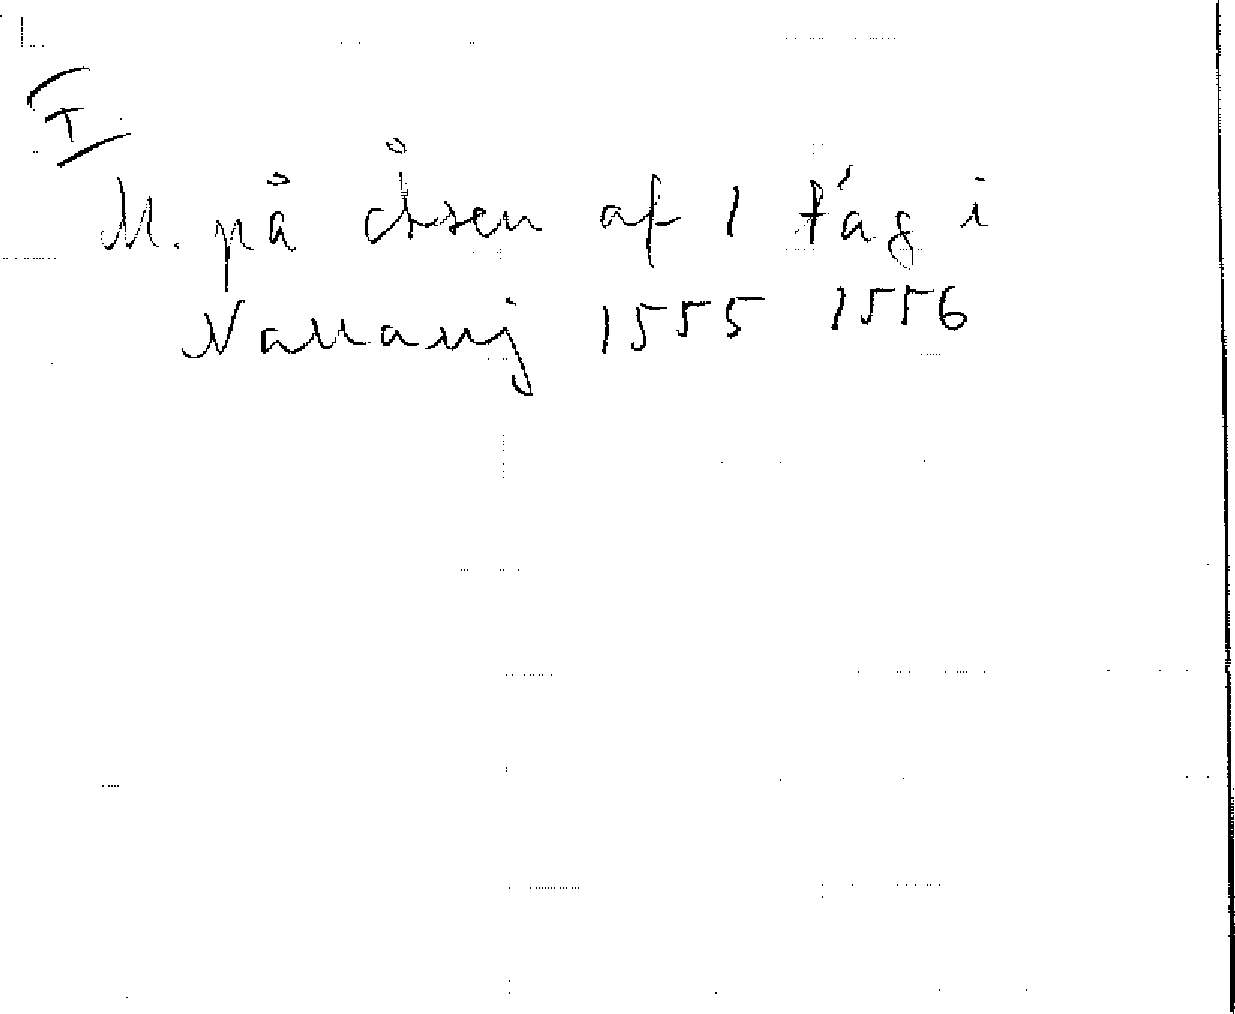 I
M. på åsen af 1 tåg i
1555 1556